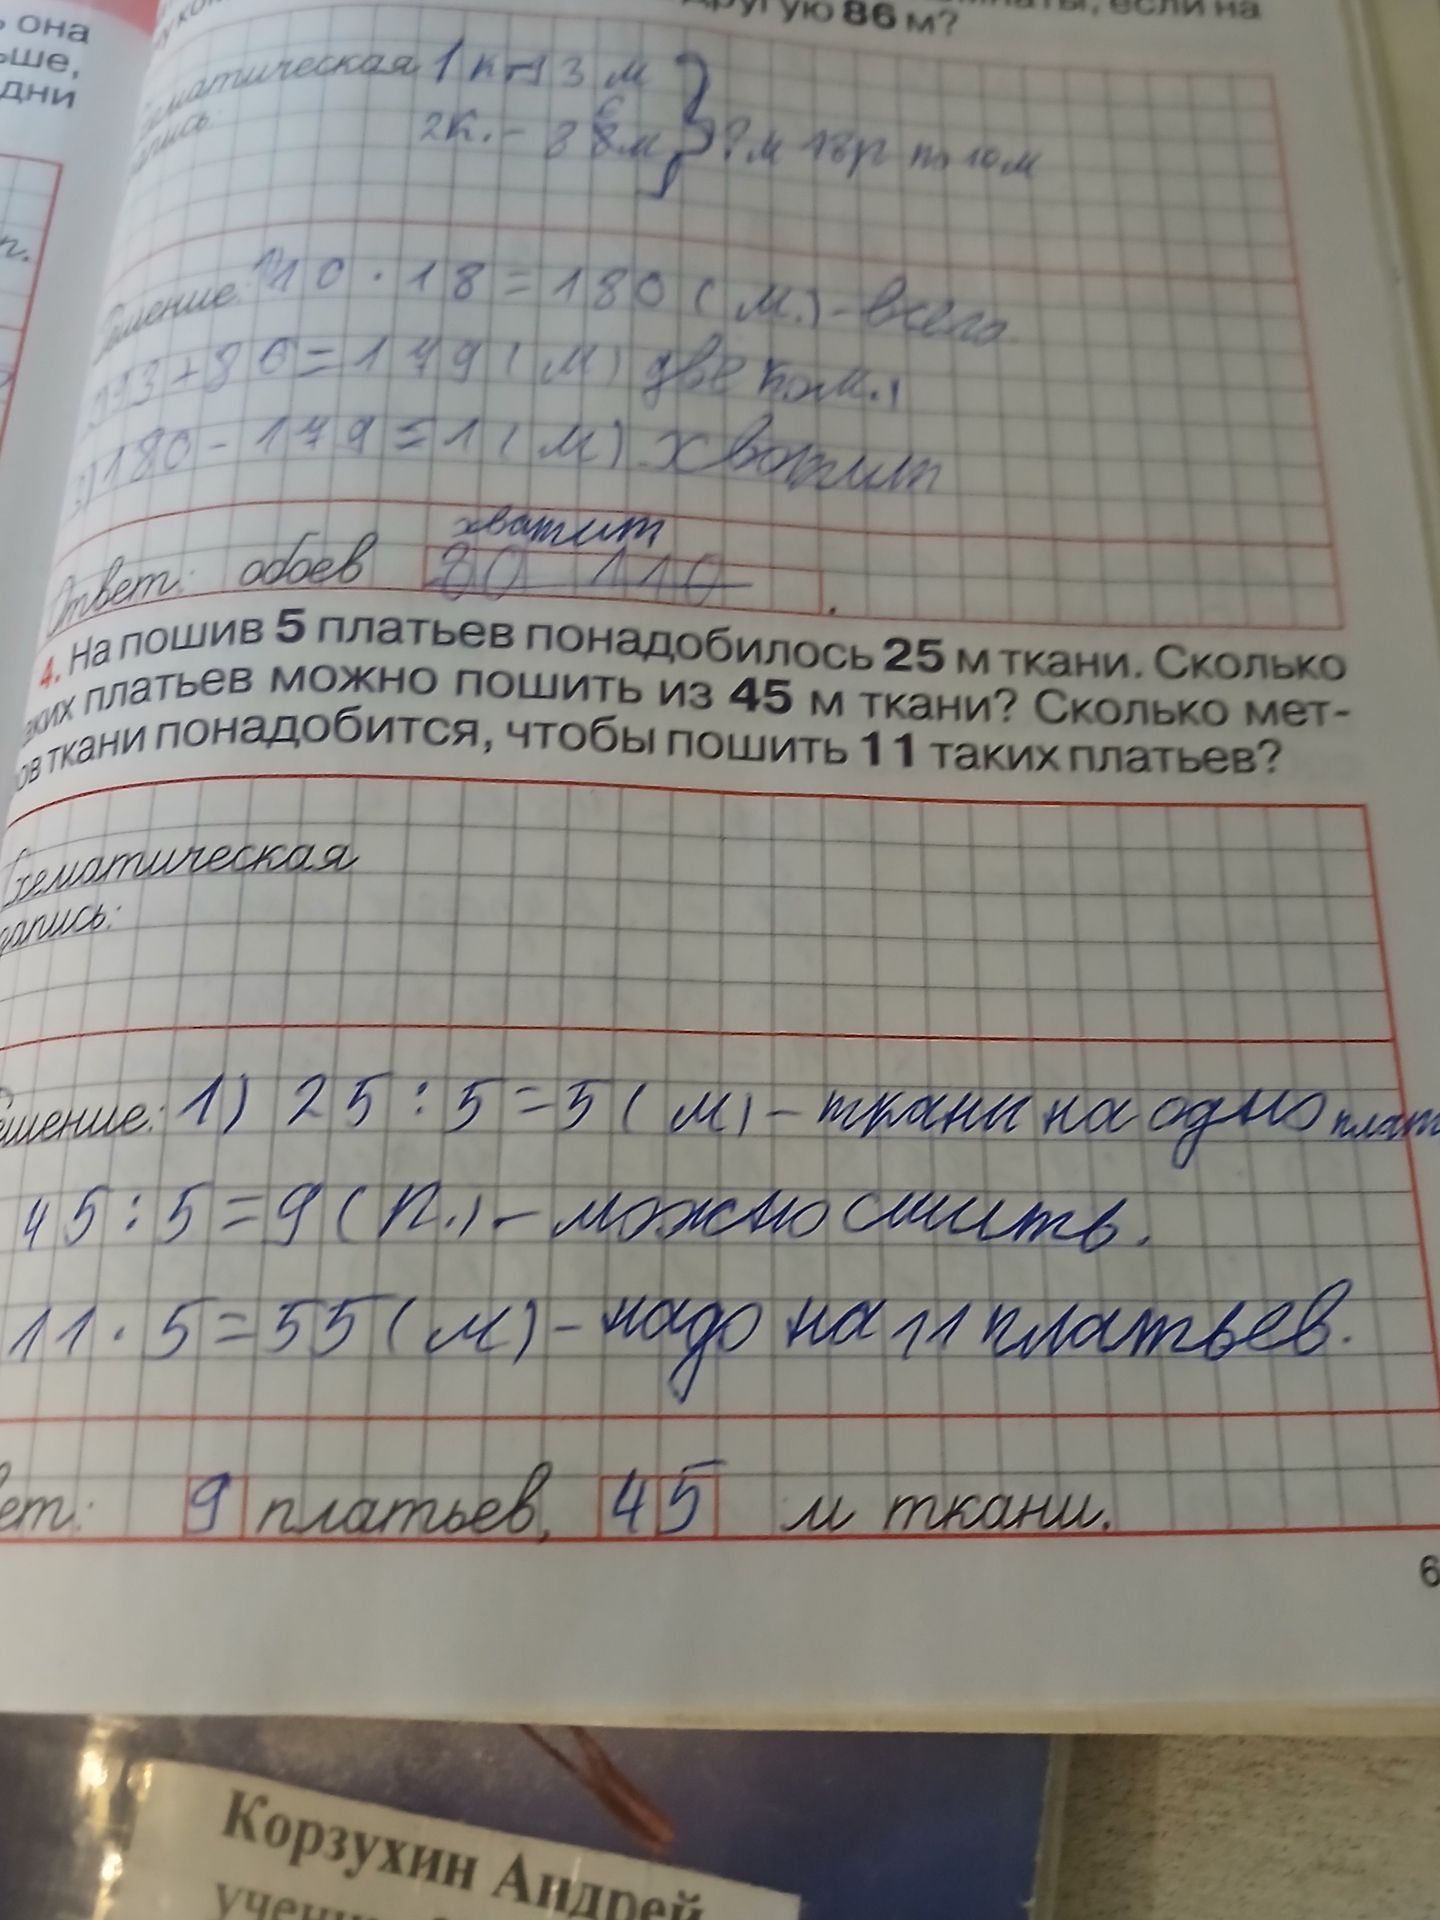 она
ьше,
дни
другую 86 м?
если на
ематическая 1 к - 93 м
апись:
2к. - 86 м } ? м 18р по 10 м
п.
ешение: 1) 10 · 18 = 180 ( м.) - всего
2) 93 + 86 = 179 ( м) две ком.
3) 180 - 179 = 1 ( м) хватит
хватит
Ответ: обоев
4. На пошив 5 платьев понадобилось 25 м ткани. Сколько
аких платьев можно пошить из 45 м ткани? Сколько мет-
ов ткани понадобится, чтобы пошить 11 таких платьев?
Схематическая
запись:
ешение: 1) 25 : 5 = 5 ( м) - ткани на одно плат
45 : 5 = 9 ( п.) - можно сшить.
11 · 5 = 55 ( м) - надо на 11 платьев.
вет: 9 платьев, 45 м ткани.
6
Корзухин Андрей